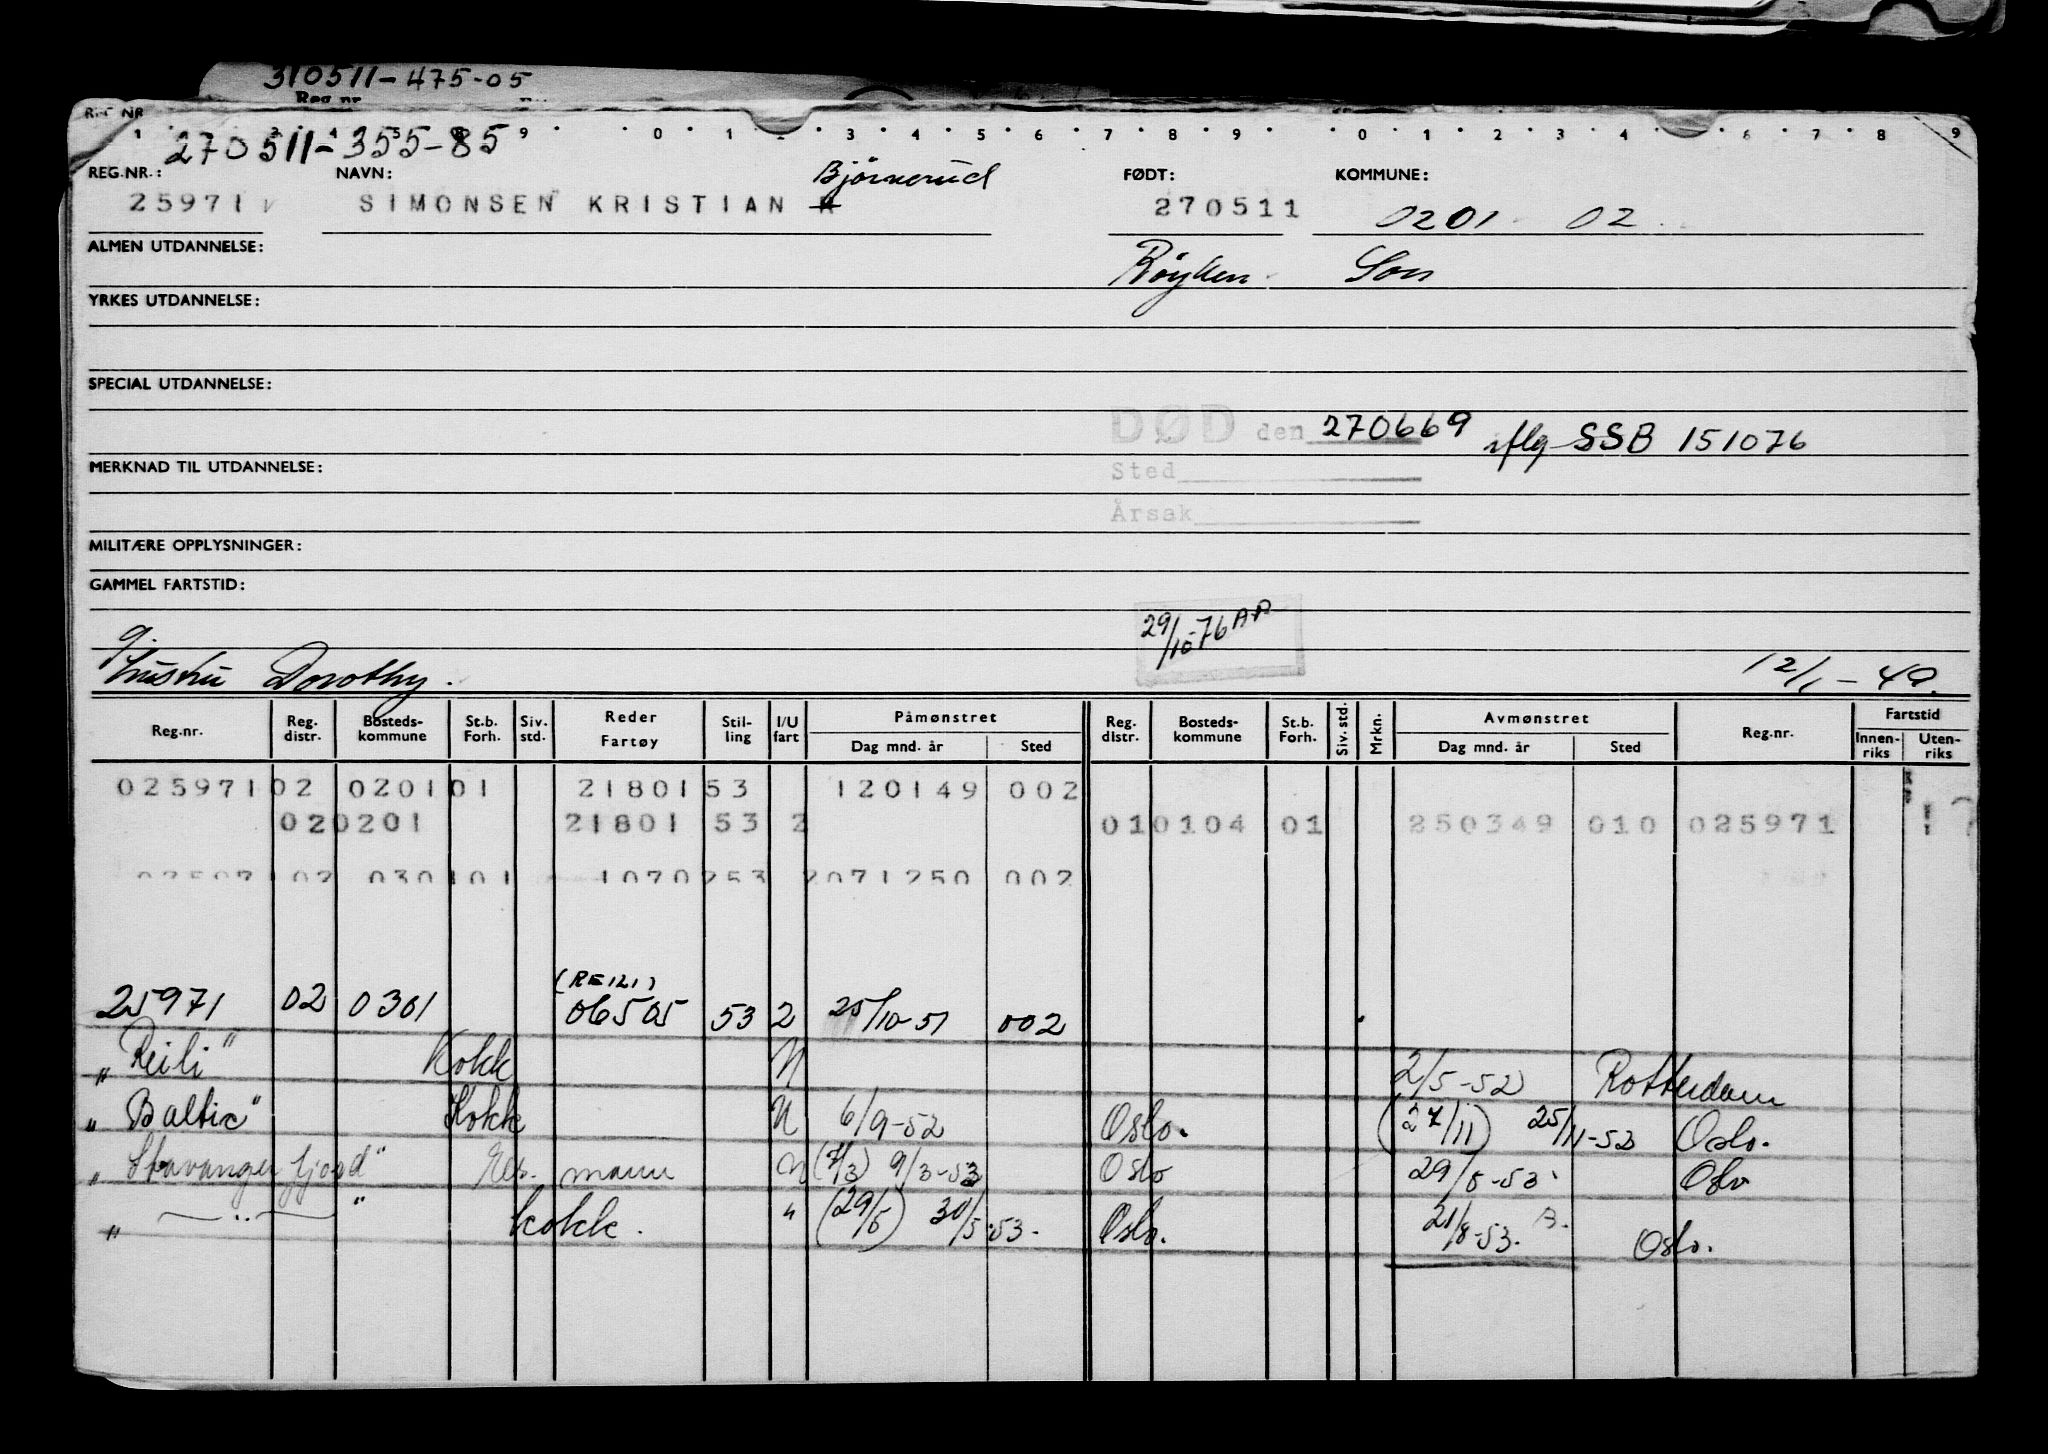 310511-475-05
Reg nr
REG NR
1 9 0 1 2 3 4 5 6 7 8 9 0 1 2 3 4 6 7 8 9
270511-355-85
REG.NR.: NAVN: Bjørnerud FØDT: KOMMUNE:
25971 SIMONSEN KRISTIAN 270511 0201 02
ALMEN UTDANNELSE: Røyken Son
YRKES UTDANNELSE:
SPECIAL UTDANNELSE:
DØD den 270669 iflg SSB 151076
MERKNAD TIL UTDANNELSE: Sted
Årsak
MILITÆRE OPPLYSNINGER:
GAMMEL FARTSTID:
29/10-76 AP
g.
hustru Dorothy. 12/1-49.
Reg.nr. Reg. distr. Bosteds-kommune St.b. Forh. Siv. std. Reder Fartøy Stil-ling I/U fart Påmønstret Dag mnd. år Sted Reg. distr. Bosteds-kommune St.b. Forh. Siv. std. Mrkn. Avmønstret Dag mnd. år Sted Reg.nr. Fartstid Innen-riks Uten-riks
025971 02 0201 01 21801 53 120149 002
02 0201 21801 53 2 01 0104 01 250349 010 025971
02597102 0301 01 10702 53 2 071250 002
(REILI)
25971 02 0301 06505 53 2 25/10-51 002
" "Reili" Kokk U 2/5-52 Rotterdam
" "Baltic" Kokk U 6/9-52 Oslo. (27/11) 25/11-52 Oslo.
" "Stavangerfjord" mann U (7/3) 9/3-53 Oslo 29/5-53 Oslo
" —"— " Kokk. " (29/5) 30/5-53. Oslo. 21/8-53. Oslo.